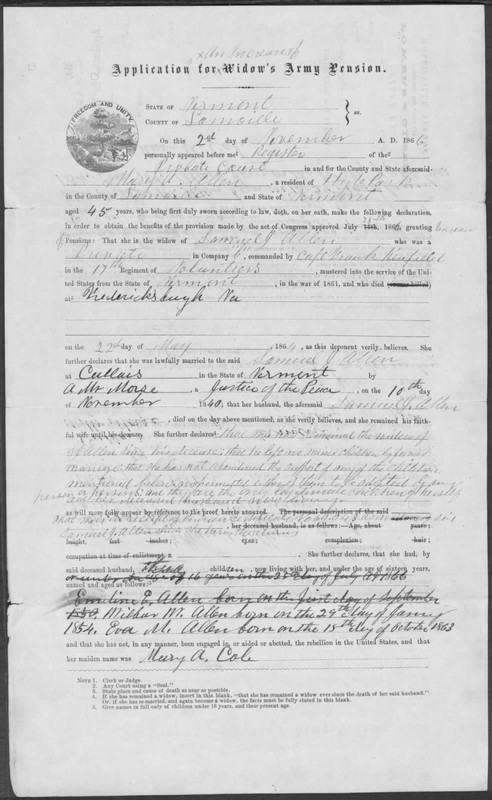 An Increase of
Application for Widow's Army Pension.
FREEDOM AND UNITY
STATE OF Vermont
COUNTY OF Lamoille } ss.
On this 2nd day of November A. D. 186
personally appeared before me Register of the
Probate Court in and for the County and State aforesaid
Mary A. Allen, a resident of
in the County of Lamoille and State of Vermont
aged 45 years, who being first duly sworn according to law, doth, on her oath, make the following declaration,
in order to obtain the benefits of the provision made by the act of Congress approved July 186 , granting Increase of
Pensions: That she is the widow of Samuel J Allen who was a
Private in Company , commanded by Capt Frank Kenfield
in the 17th Regiment of Volunteers, mustered into the service of the Uni-
ted States from the State of Vermont, in the war of 1861, and who died
at Fredericksburgh Va
on the 22d day of May 1864, as this deponent verily believes. She
further declares that she was lawfully married to the said Samuel J Allen
at Callais in the State of Vermont by
A Mr Morse, a Justice of the Peace, on the 10th day
of November 1840, that her husband, the aforesaid Samuel J Allen
, died on the day above mentioned, as she verily believes, and she remained his faith-
ful wife until his decease. She further declares that she has remained the widow of
S Allen since his decease; that he left no minor children by former
marriage; that she has not abandoned the support of any of the children
mentioned below, or permitted either of them to be adopted by any
person or persons, and they are the only legitimate children of herself
and her deceased husband now living
as will more fully appear by reference to the proof hereto annexed. The personal description of the said
Samuel J Allen , her deceased husband, is as follows: Age, about years;
height, feet inches; eyes; complexion; hair;
occupation at time of enlistment, a . She further declares, that she had, by
said deceased husband, three children, now living with her, and under the age of sixteen years,
named and aged as follows: or under the age of 16 years on the 25th day of July AD 1866
Emiline E, Allen born on the first day of September
1850, Milbur M. Allen born on the 29th day of January
1854. Eva M. Allen born on the 15th day of October 1863
and that she has not, in any manner, been engaged in, or aided or abetted, the rebellion in the United States, and that
her maiden name was Mary A. Cole
NOTE 1. Clerk or Judge.
2. Any Court using a "Seal."
3. State place and cause of death as near as possible.
4. If she has remained a widow, insert in this blank, "that she has remained a widow ever since the death of her said husband."
Or, if he re-married, and again become a widow, the facts must be fully stated in this blank.
5. Give names in full only of children under 16 years, and their present age.